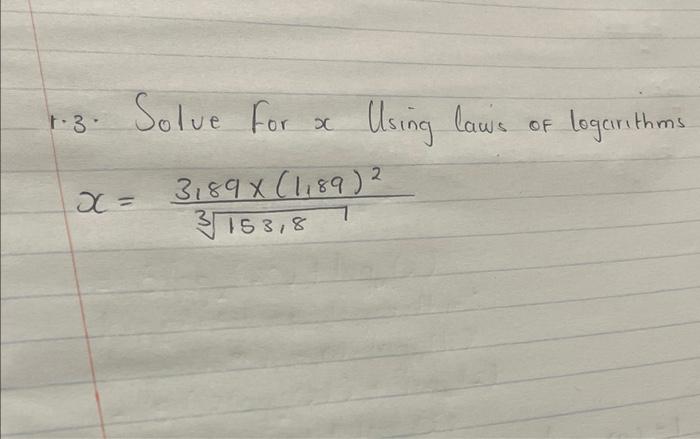 1.3. Solve for x Using laws of logarithms
x = 3,89 x (1,89)²
∛153,8